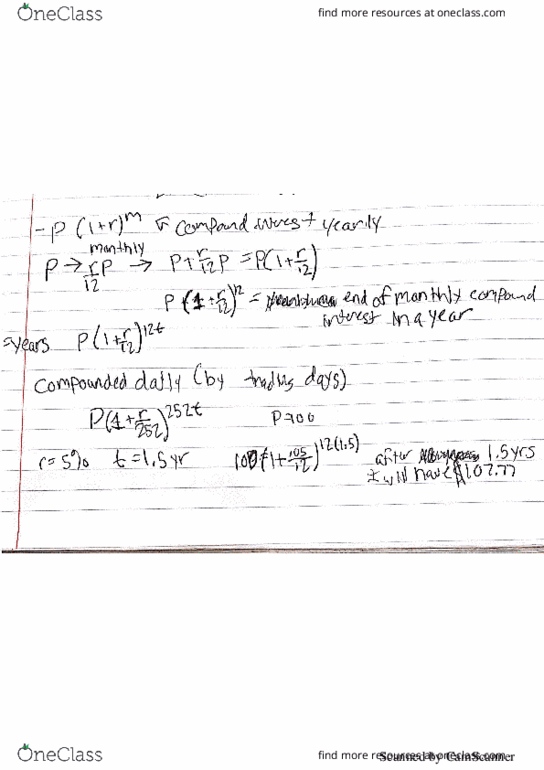 OneClass
find more resources at oneclass.com
- P (1+r)^m compound interest yearly
monthly
P → r/12 P → P+ r/12 P = P(1+ r/12)
P (1+ r/12)^12 = end of monthly compound
interest in a year
=years P(1+ r/12)^12t
compounded daily (by trading days)
P(1+ r/252)^252t P=100
r=5% t=1.5yr 100(1+ .05/12)^12(1.5) after 1.5yrs
I will have $107.77
OneClass
find more resources at oneclass.com
Scanned by CamScanner